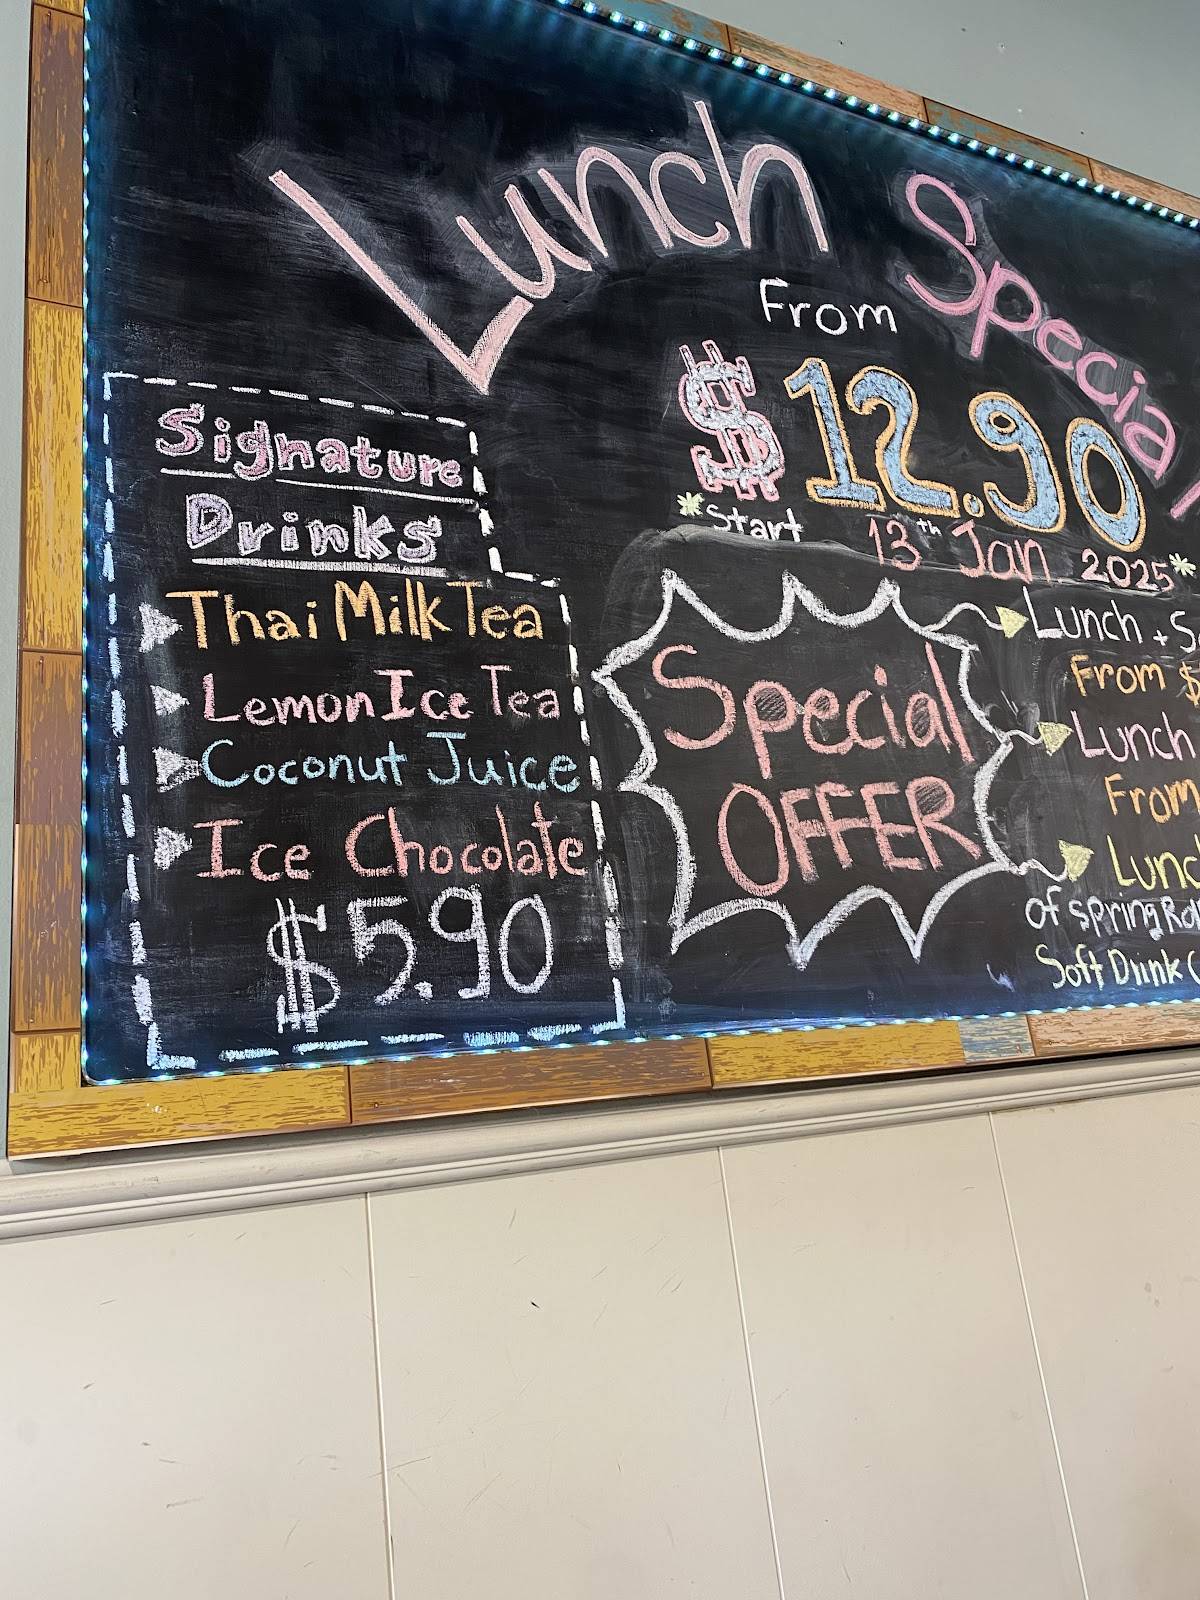 Lunch Special
From
$12.90
*Start 13th Jan 2025*
Signature
Drinks
Thai Milk Tea
Lemon Ice Tea
Coconut Juice
Ice Chocolate
$5.90
Special
OFFER
Lunch +
From $
Lunch
From
of spring
Soft Drink